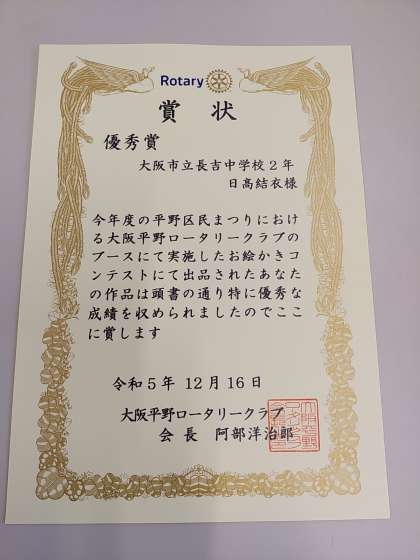 Rotary
賞状
優秀賞
大阪市立長吉中学校2年
日高結衣様
今年度の平野区民まつりにおけ
る大阪平野ロータリークラブの
ブースにて実施したお絵かきコ
ンテストにて出品されたあなた
の作品は頭書の通り特に優秀な
成績を収められましたのでここ
に賞します
令和5年 12月16日
大阪平野ロータリークラブ
会長 阿部洋治郎